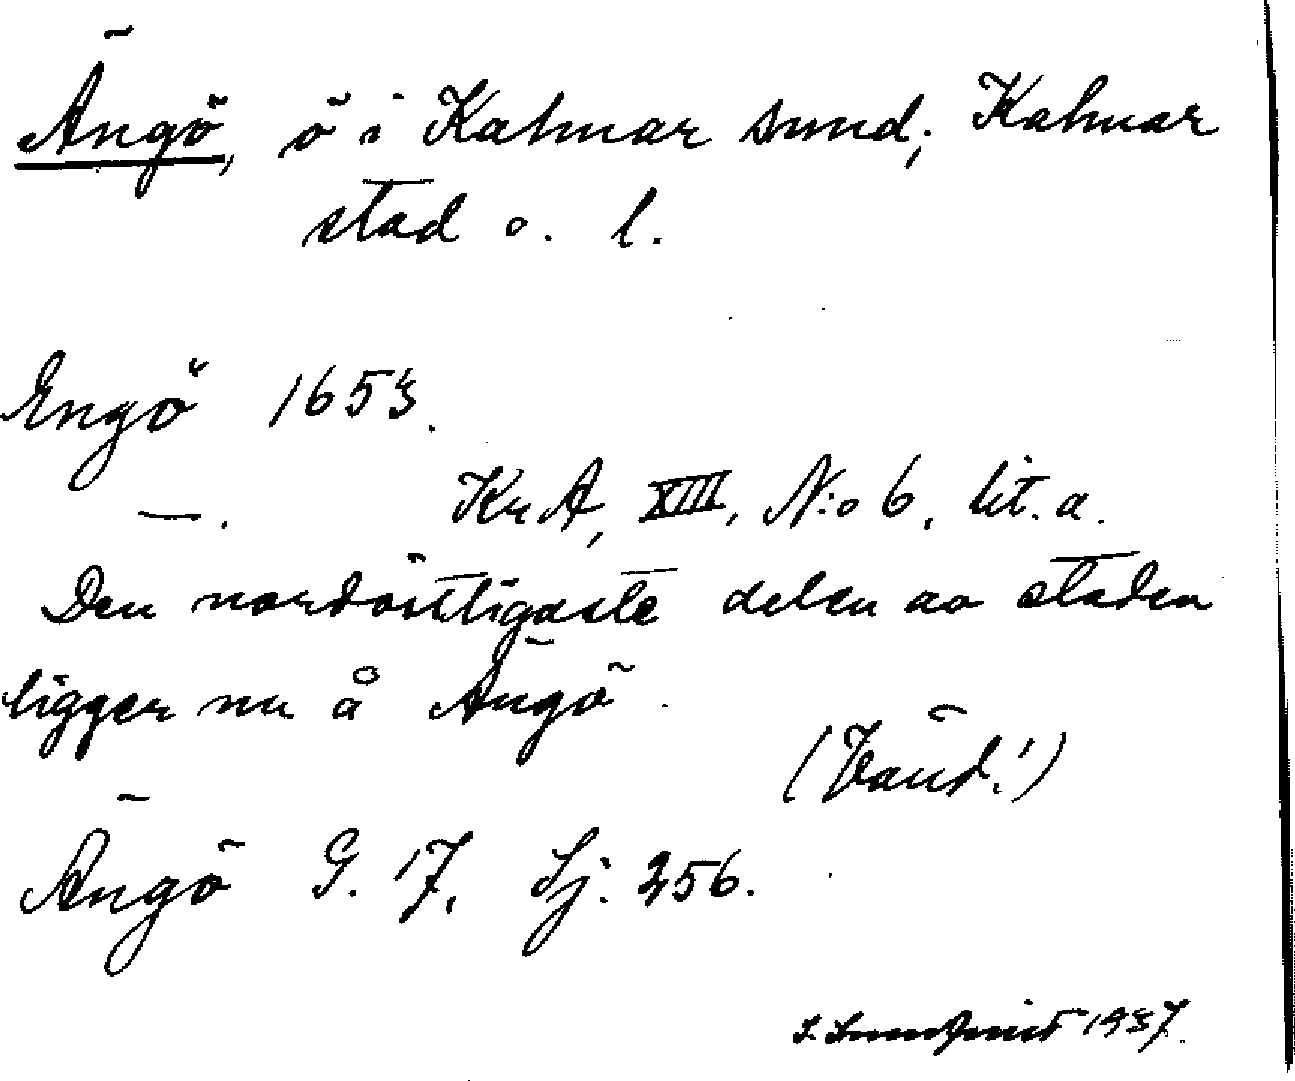 Ängö, ö i Kalmar sund; Kalmar
stad o. l.
Engö 1653.
—. KrA, XIII, N:o 6, lit. a.
Den nordöstligaste delen av staden
ligger nu å Ängö.
(Vänd!)
Ängö G. 17, Sj. 256.
S. Sundqvist 1937.